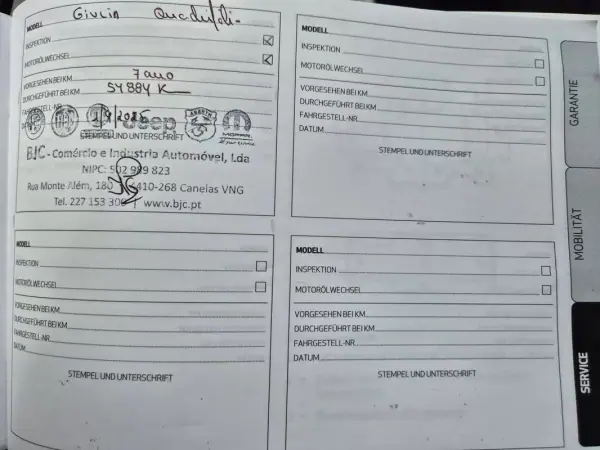 MODELL Giulia Quadrifoli-
INSPEKTION
MOTORÖLWECHSEL
VORGESEHEN BEI KM 7 ano
DURCHGEFÜHRT BEI KM 54884 K
FAHRGESTELL-NR.
Jeep ABARTH MOPAR
STEMPEL UND UNTERSCHRIFT
BJC - Comércio e Indústria Automóvel, Lda
NIPC: 502 989 823
Rua Monte Além, 180 4410-268 Canelas VNG
Tel. 227 153 30 | www.bjc.pt
MODELL
INSPEKTION
MOTORÖLWECHSEL
VORGESEHEN BEI KM
DURCHGEFÜHRT BEI KM
FAHRGESTELL-NR.
DATUM
STEMPEL UND UNTERSCHRIFT
MODELL
INSPEKTION
MOTORÖLWECHSEL
VORGESEHEN BEI KM
DURCHGEFÜHRT BEI KM
FAHRGESTELL-NR.
DATUM
STEMPEL UND UNTERSCHRIFT
MODELL
INSPEKTION
MOTORÖLWECHSEL
VORGESEHEN BEI KM
DURCHGEFÜHRT BEI KM
FAHRGESTELL-NR.
DATUM
STEMPEL UND UNTERSCHRIFT
GARANTIE
MOBILITÄT
SERVICE